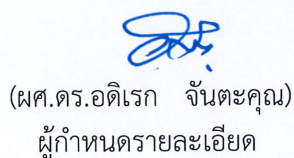 (ผศ.ดร.อดิเรก จันตะคุณ)
ผู้กำหนดรายละเอียด